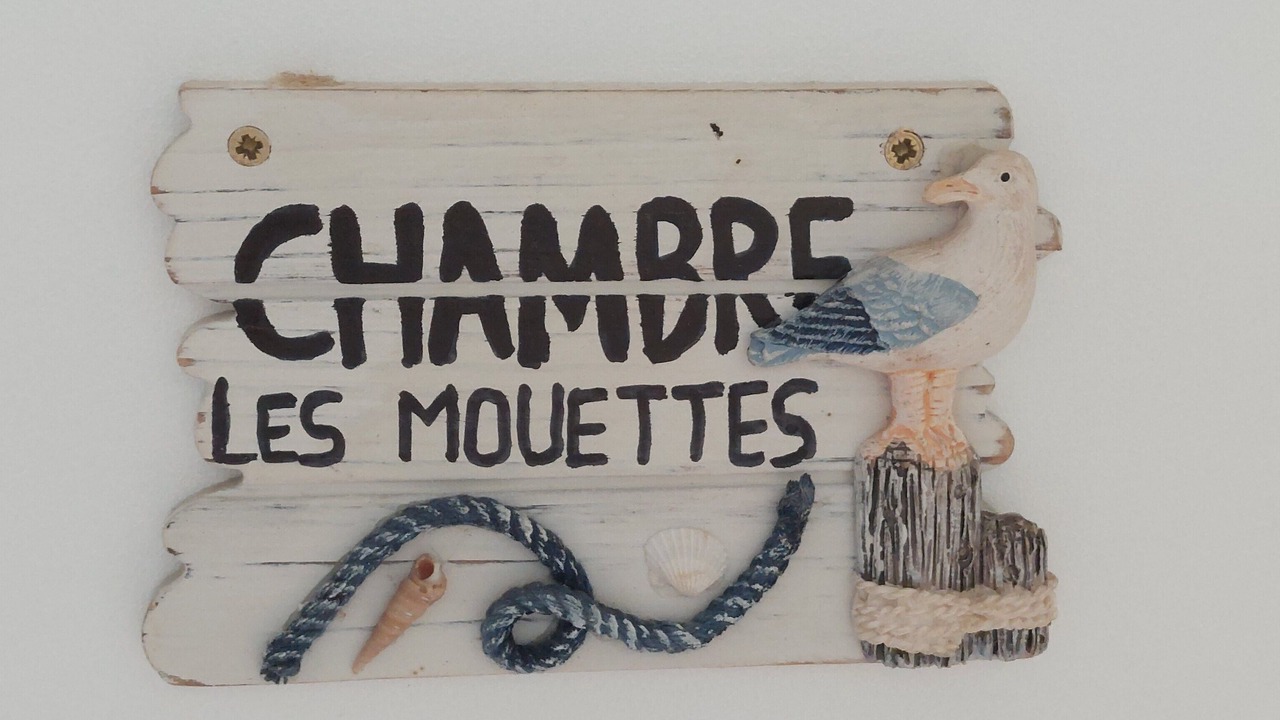 CHAMBRE
LES MOUETTES